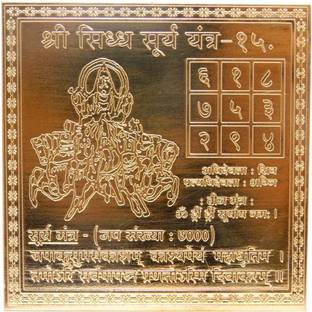 श्री सिध्ध सूर्य यंत्र-१५.
६ १ ८
७ ५ ३
२ ९ ४
अधिदेवता : शिव
प्रत्यधिदेवता : अग्नि
बीज मंत्र :
ॐ ह्रीं ह्रौं सूर्याय नमः ।
सूर्य मंत्र : (जप संख्या : ७०००)
जपाकुसुमसंकाशं काश्यपेयं महाद्युतिम् ।
तमोऽरिं सर्वपापघ्नं प्रणतोऽस्मि दिवाकरम् ॥